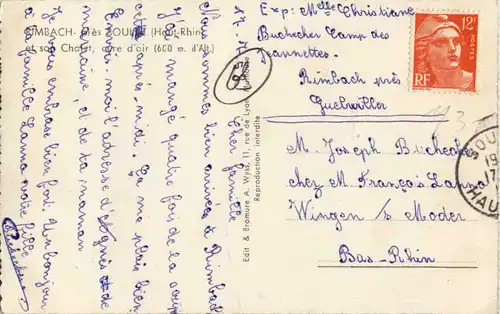 RIMBACH - près SOULTZ (Haut-Rhin)
et son Chalet, cure d'air (600 m. d'Alt.)
Chère famille
Nous sommes bien arrivées à Rimbach
J'ai mangé quatre fois de la soupe
cet après-midi. Ça me plaît bien
Écris-moi l'adresse d'Agnès et de
et de ma maman
Je vous embrasse bien fort. Un bonjour
à famille Lanna votre fille
Edit & Bromure A. Wyss, 11, rue de Lyon
Reproduction interdite
58
Exp: Melle Christiane
Buchecker Camp des
Jeannettes.
Rimbach près
Guebwiller
M. Joseph Buchecker
chez M. François Lanna
Wingen s/ Moder
Bas-Rhin
12F
RF
113
SOUL
19
17
HAU